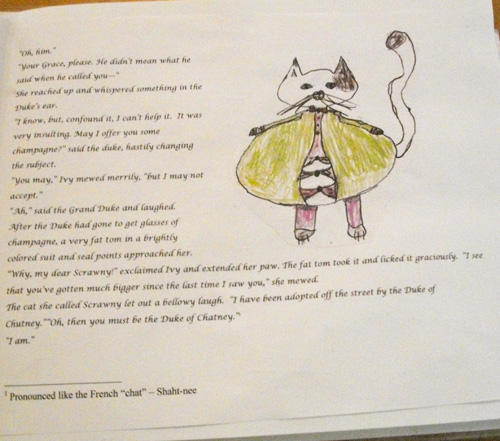 "Oh, him."
"Your Grace, please. He didn't mean what he
said when he called you—"
She reached up and whispered something in the
Duke's ear.
"I know, but, confound it, I can't help it.  It was
very insulting. May I offer you some
champagne?" said the duke, hastily changing
the subject.
"You may," Ivy mewed merrily, "but I may not
accept."
"Ah," said the Grand Duke and laughed.
After the Duke had gone to get glasses of
champagne, a very fat tom in a brightly
colored suit and seal points approached her.
"Why, my dear Scrawny!" exclaimed Ivy and extended her paw. The fat tom took it and licked it graciously.  "I see
that you've gotten much bigger since the last time I saw you," she mewed.
The cat she called Scrawny let out a bellowy laugh.  "I have been adopted off the street by the Duke of
Chutney.""Oh, then you must be the Duke of Chatney."¹
"I am."
¹ Pronounced like the French "chat" – Shaht-nee